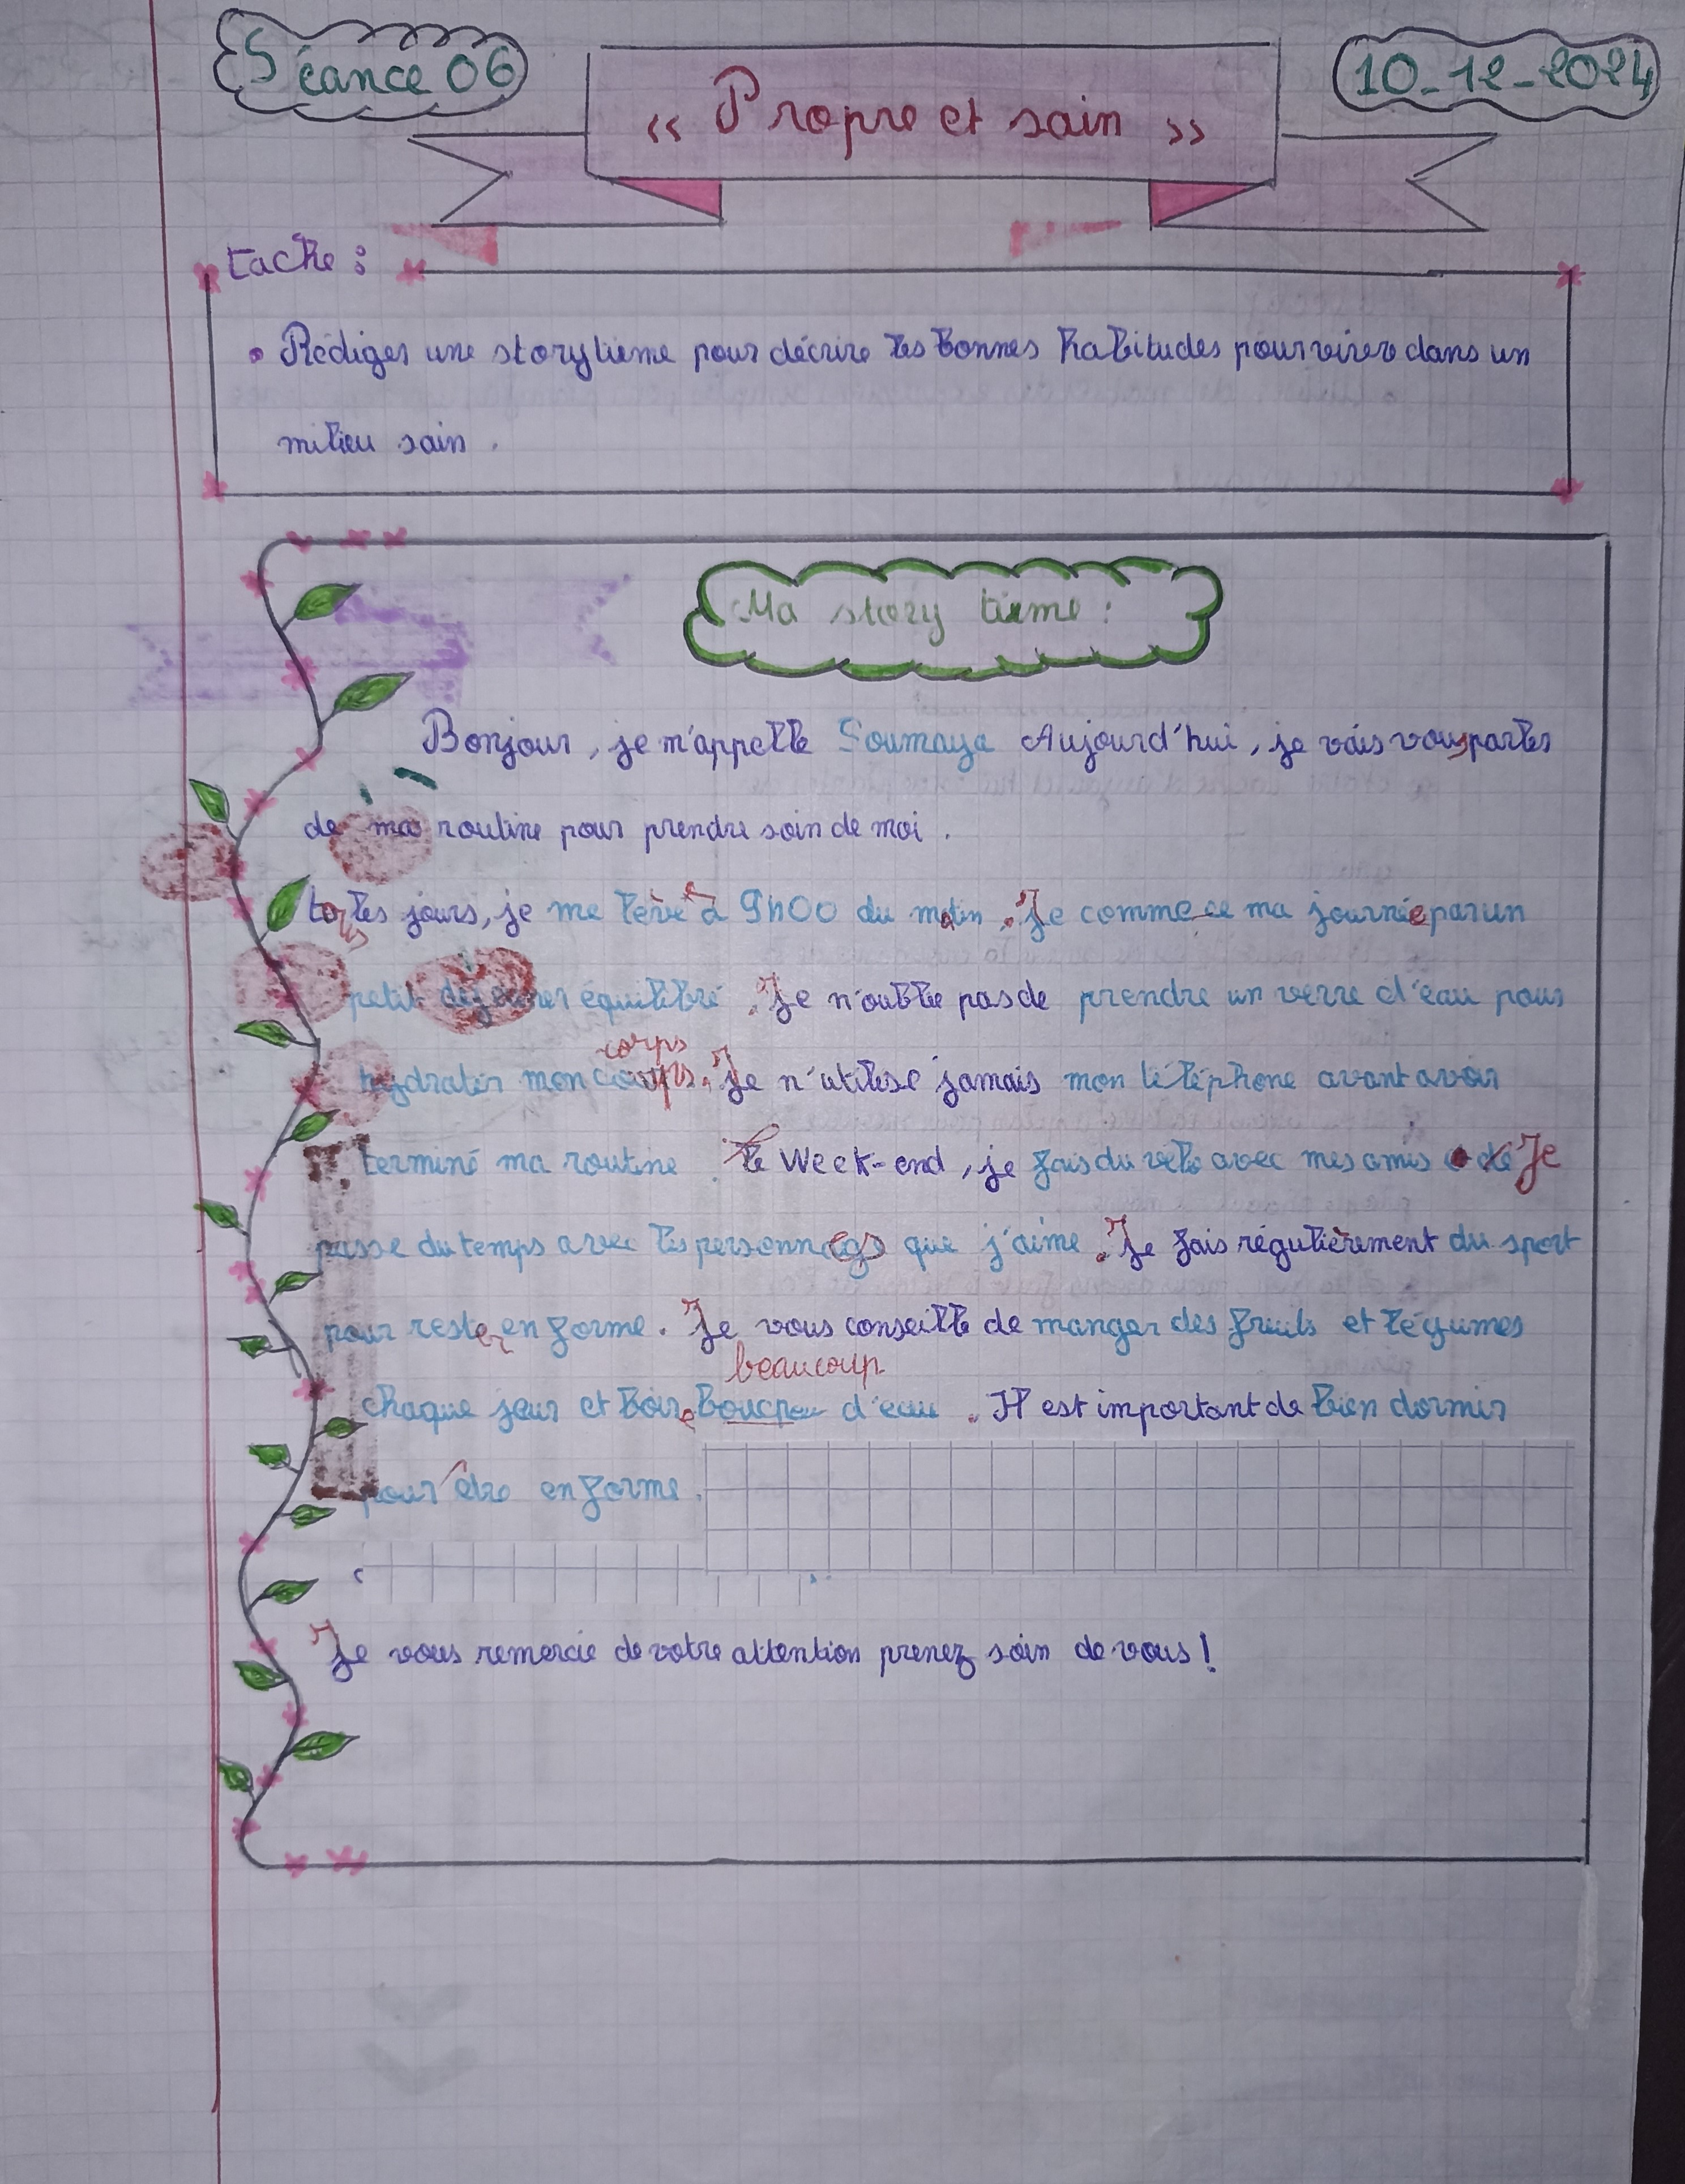 Séance 06
10-12-2024
« Propre et sain »
tache :
• Rédiger une storytieme pour décrire les bonnes habitudes pour vivre dans un
milieu sain .
Ma story tieme :
Bonjour , je m'appelle Soumaya Aujourd'hui , je vais vous parler
de ma routine pour prendre soin de moi .
tous les jours, je me lève à 9h00 du matin . Je commence ma journée par un
petit déjeuner équilibré . Je n'oublie pas de prendre un verre d'eau pour
corps
hydrater mon . Je n'utilise jamais mon téléphone avant avoir
terminé ma routine . le week-end , je fais du vélo avec mes amis Je
passe du temps avec les personnes que j'aime . Je fais régulièrement du sport
pour rester en forme . Je vous conseille de manger des fruits et légumes
beaucoup
chaque jour et boire d'eau . Il est important de bien dormir
pour être en forme .
Je vous remercie de votre attention prenez soin de vous !